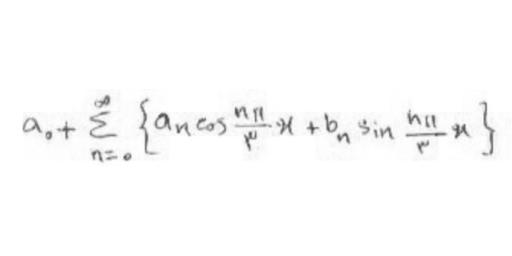 a₀ + \sum_{n=0}^{\infty} \left\{ a_n \cos \frac{n\pi}{۳} x + b_n \sin \frac{n\pi}{۳} x \right\}